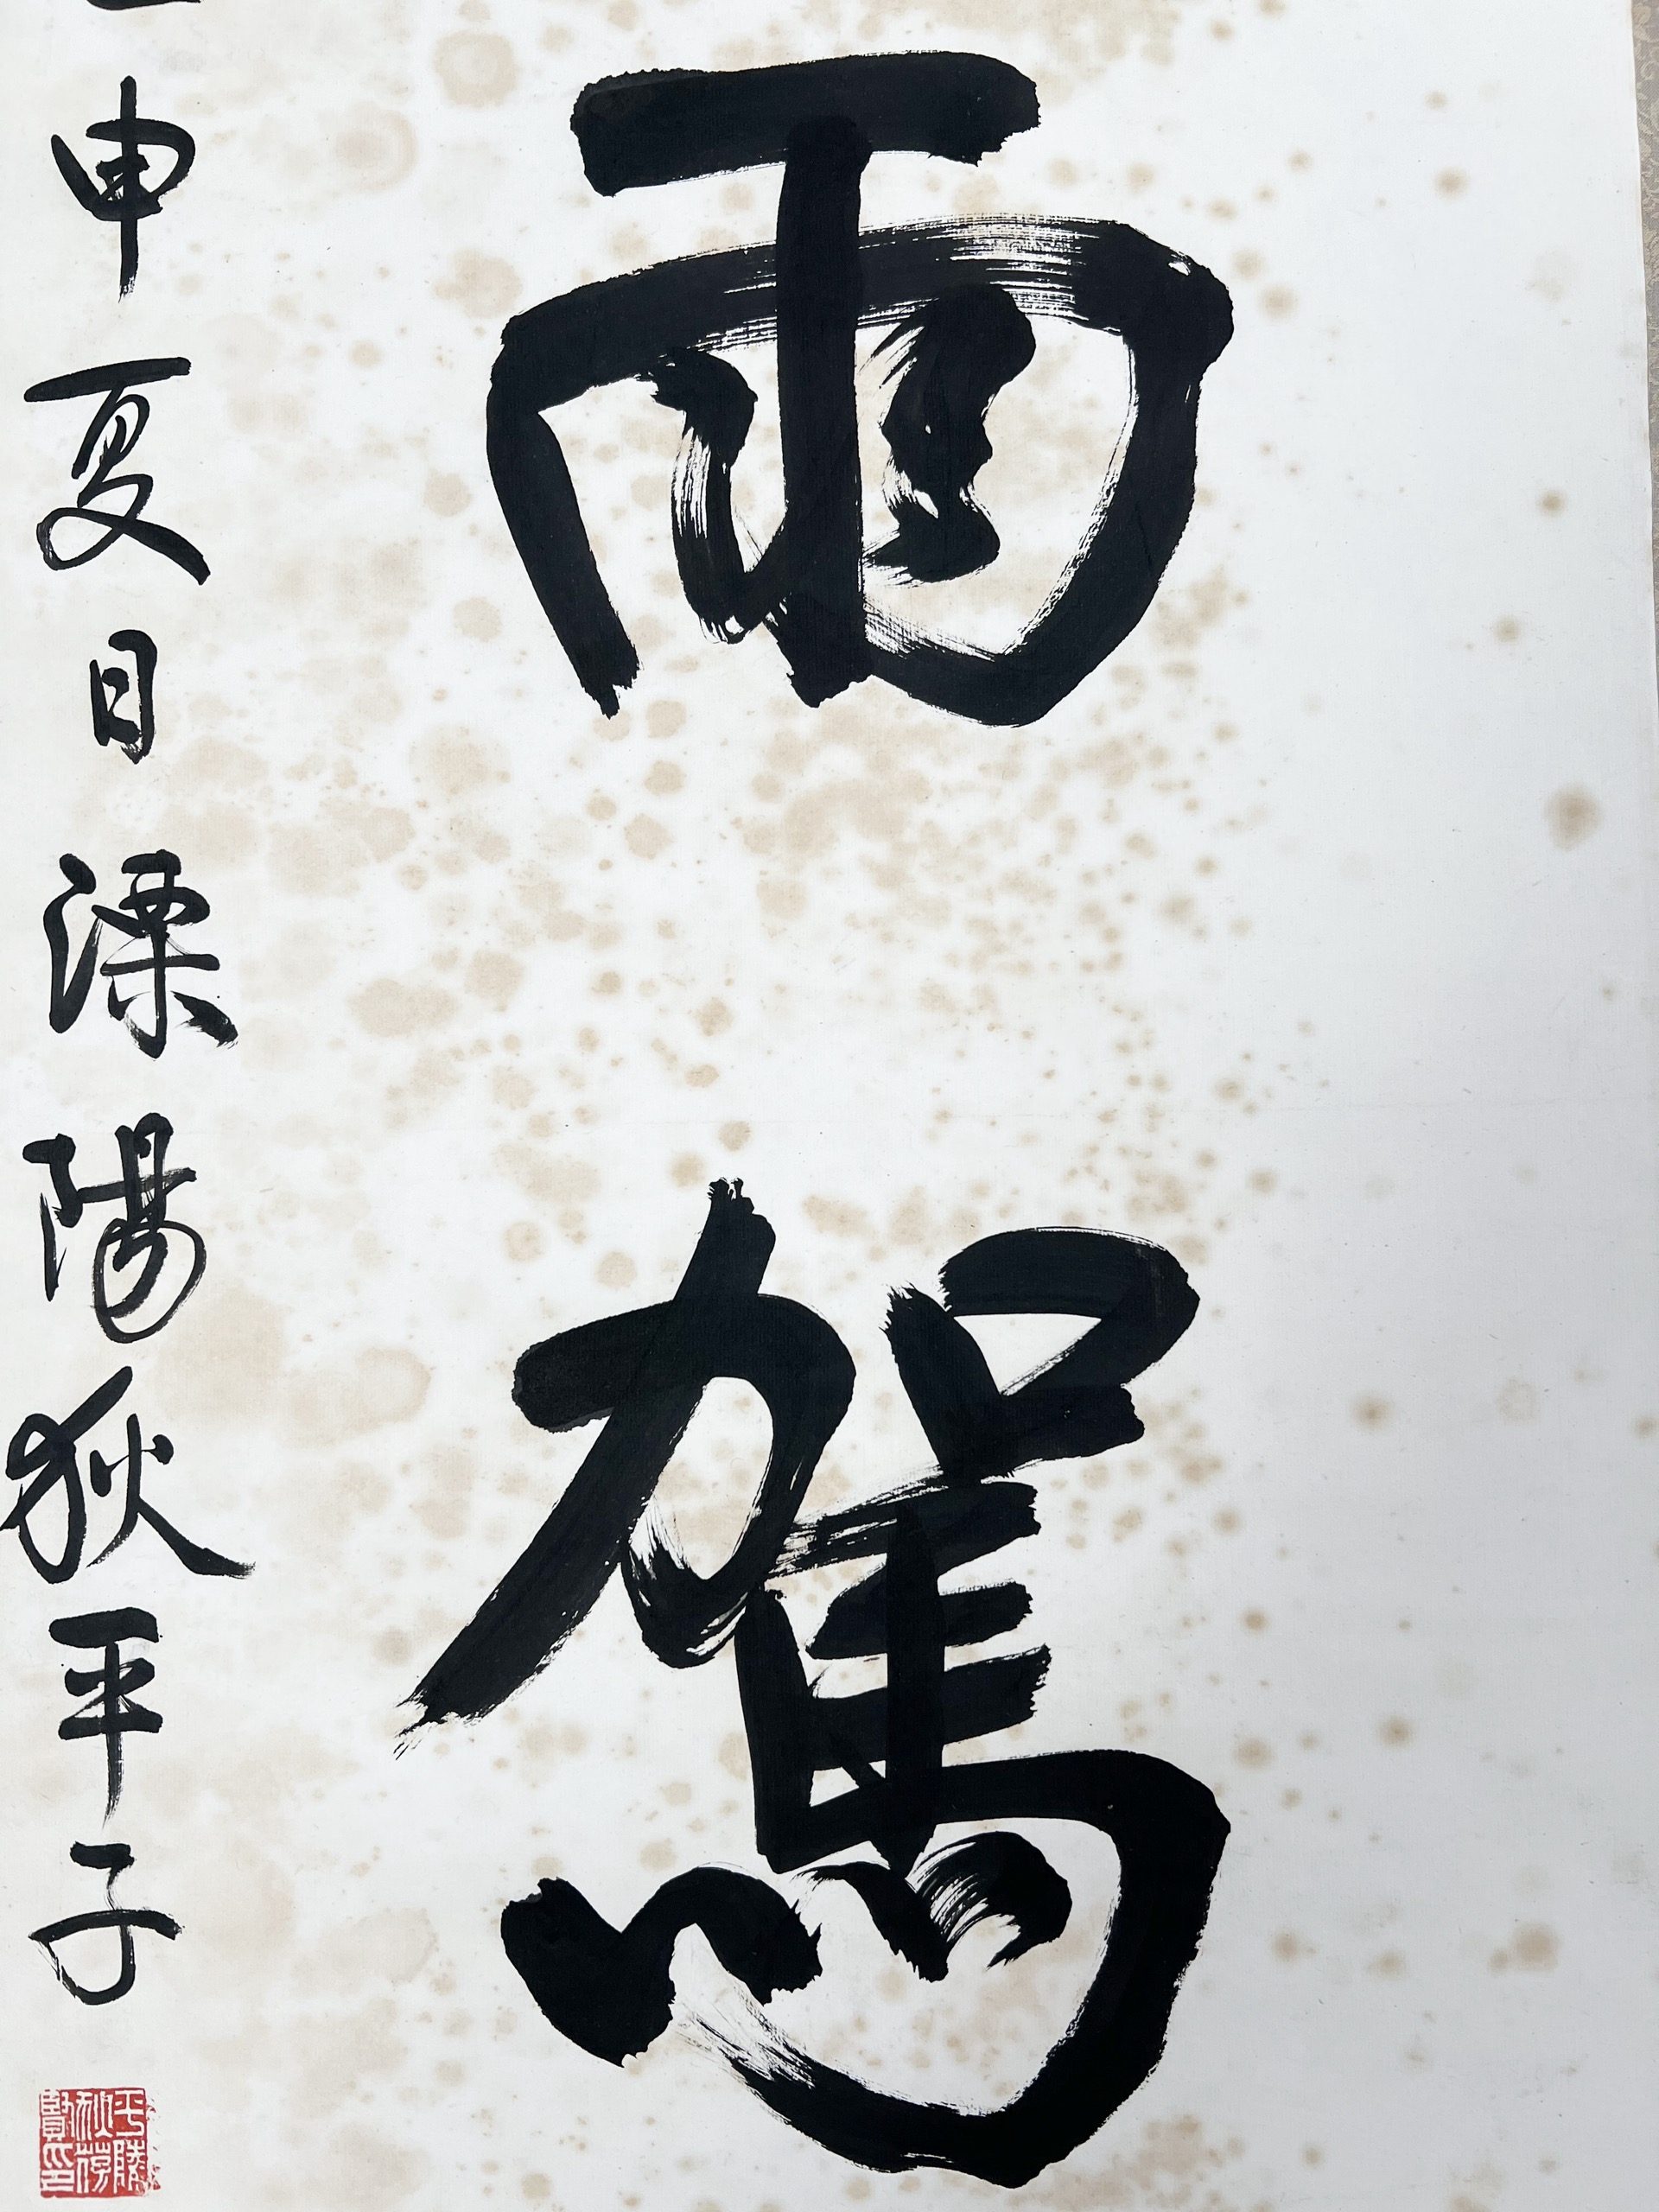 雨駕
申夏日溧陽狄平子